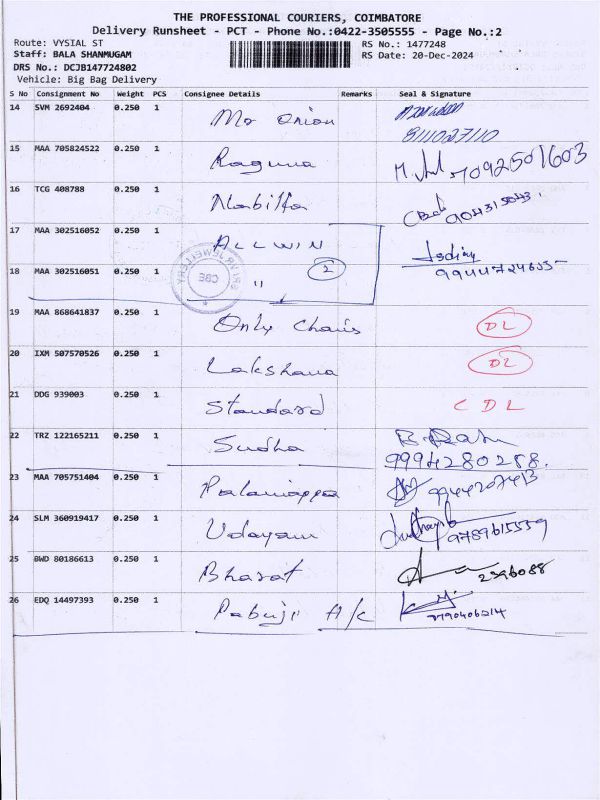 THE PROFESSIONAL COURIERS, COIMBATORE
Delivery Runsheet - PCT - Phone No.:0422-3505555 - Page No.:2
Route: VYSIAL ST RS No.: 1477248
Staff: BALA SHANMUGAM RS Date: 20-Dec-2024
DRS No.: DCJB147724802
Vehicle: Big Bag Delivery
S No Consignment No Weight PCS Consignee Details Remarks Seal & Signature
14 SVM 2692404 0.250 1 Mr Onion
8111027110
15 MAA 705824522 0.250 1 Raguna 7092501603
16 TCG 408788 0.250 1 Nabilta
17 MAA 302516052 0.250 1 ALLWIN
18 MAA 302516051 0.250 1 " 2
CBE
19 MAA 868641837 0.250 1 Only Chains DL
20 IXM 507570526 0.250 1 Lakshana DL
21 DDG 939003 0.250 1 Standard CDL
22 TRZ 122165211 0.250 1 Sudha
9994280288.
23 MAA 705751404 0.250 1 Palaniappa 9944207413
24 SLM 360919417 0.250 1 Udayam 9789615559
25 BWD 80186613 0.250 1 Bharat 2396088
26 EDQ 14497393 0.250 1 Pabuji A/c
7790406214